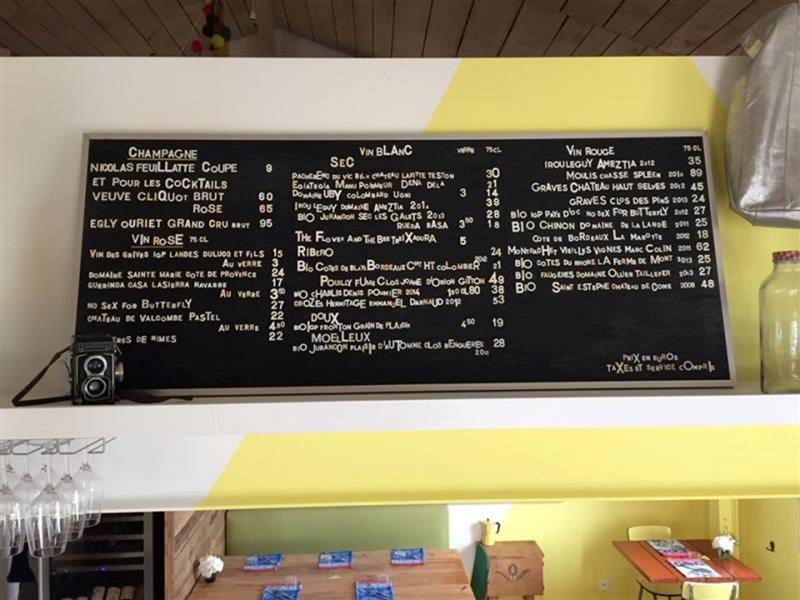 CHAMPAGNE
NICOLAS FEUILLATTE COUPE 9
ET POUR LES COCKTAILS
VEUVE CLIQUOT BRUT 60
ROSE 65
EGLY OURIET GRAND CRU BRUT 95
VIN ROSE 75 CL
VIN DES GRIVES IGP LANDES DULUCQ ET FILS 15
AU VERRE 3
DOMAINE SAINTE MARIE COTE DE PROVENCE 24
GUERINDA CASA LASIERRA NAVARRE 17
AU VERRE 3 50
NO SEX FOR BUTTERFLY 27
CHATEAU DE VALCOMBE PASTEL 22
AU VERRE 4 50
RES DE NIMES 22
VIN BLANC VERRE 75 CL
SEC
PACHERENC DU VIC BILH CHATEAU LAFITTE TESTON 30
EGIATEGIA DENA DELA 21
DOMAINE UBY COLOMBARD UGNI 3 14
IROULEGUY DOMAINE AMEZTIA 39
BIO JURANCON SEC LES GALETS 2013 28
RUEDA BASA 3 50 18
THE FLOWER AND THE BEE TREIXADURA 5
RIBERO 24
BIO COTES DE BLAYE BORDEAUX CHT HT COLOMBIER 2012 21
POUILLY FUME CLOS JOANE D'ORION GITTON 49
BIO CHABLIS DENIS POMMIER 2014 38
CROZES HERMITAGE EMMANUEL DARNAUD 2012 53
DOUX
BIO IGP FRONTON GRAIN DE PLAISIR 4 50 19
MOELLEUX
BIO JURANCON PLAISIR D'AUTOMNE CLOS BENGUERES 28
2011
VIN ROUGE 75 CL
IROULEGUY AMEZTIA 2012 35
MOULIS CHASSE SPLEEN 2010 89
GRAVES CHATEAU HAUT SELVES 2012 45
GRAVES CLOS DES PINS 2013 24
BIO IGP PAYS D'OC NO SEX FOR BUTTERFLY 2012 27
BIO CHINON DOMAINE DE LA LANDE 2011 25
COTE DE BORDEAUX LA MAROTTE 2012 18
VIEILLES VIGNES MARC COLIN 2011 62
BIO COTES DU RHONE LA FERME DU MONT 2013 25
BIO FAUGERES DOMAINE OLIVIER TAILLEFER 2013 27
BIO SAINT ESTEPHE CHATEAU DE COME 2008 48
PRIX EN EUROS
TAXES ET SERVICE COMPRIS